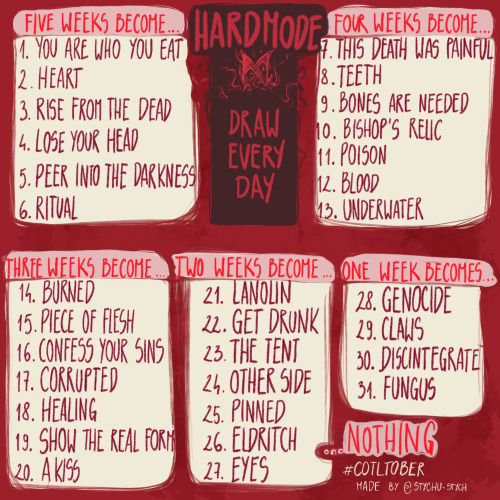 FIVE WEEKS BECOME...
1. YOU ARE WHO YOU EAT
2. HEART
3. RISE FROM THE DEAD
4. LOSE YOUR HEAD
5. PEER INTO THE DARKNESS
6. RITUAL
HARDMODE
DRAW
EVERY
DAY
FOUR WEEKS BECOME...
7. THIS DEATH WAS PAINFUL
8. TEETH
9. BONES ARE NEEDED
10. BISHOP'S RELIC
11. POISON
12. BLOOD
13. UNDERWATER
THREE WEEKS BECOME...
14. BURNED
15. PIECE OF FLESH
16. CONFESS YOUR SINS
17. CORRUPTED
18. HEALING
19. SHOW THE REAL FORM
20. A KISS
TWO WEEKS BECOME...
21. LANOLIN
22. GET DRUNK
23. THE TENT
24. OTHER SIDE
25. PINNED
26. ELDRITCH
27. EYES
ONE WEEK BECOMES...
28. GENOCIDE
29. CLAWS
30. DISCINTEGRATE
31. FUNGUS
...NOTHING
#COTLTOBER
MADE BY @STYCHU-STYCH